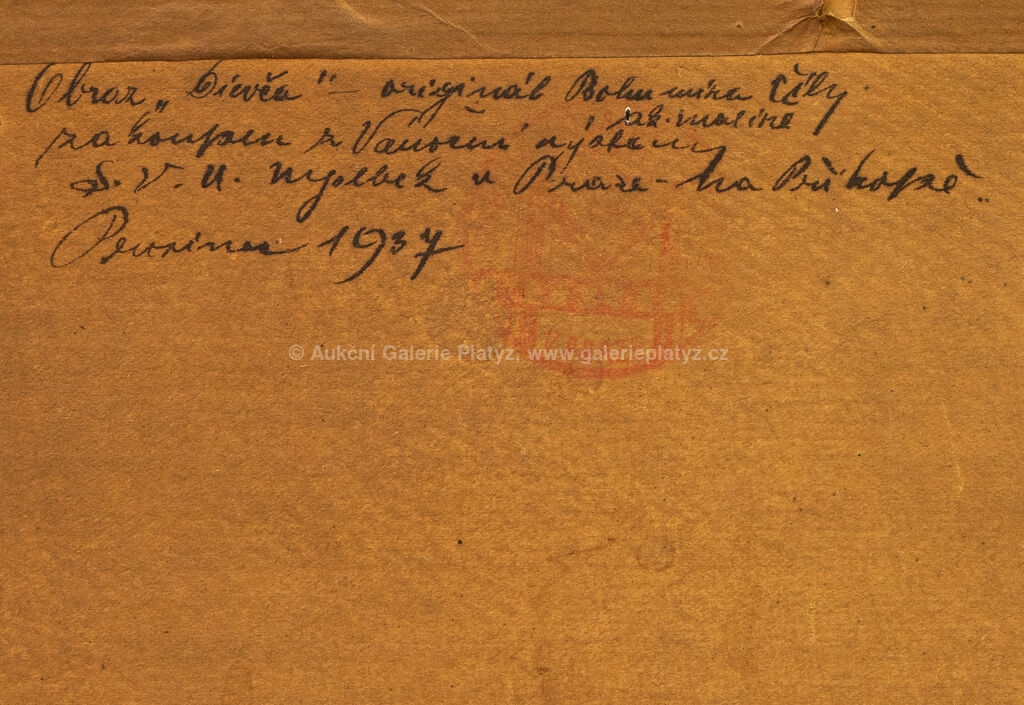 Obraz „Dievča" – originál Bohumíra Číly
ak. malíře
zakoupen z Vánoční výstavy
S. V. U. Myslbek v Praze – Na Příkopě.
Prosinec 1937
© Aukční Galerie Platýz, www.galerieplatyz.cz